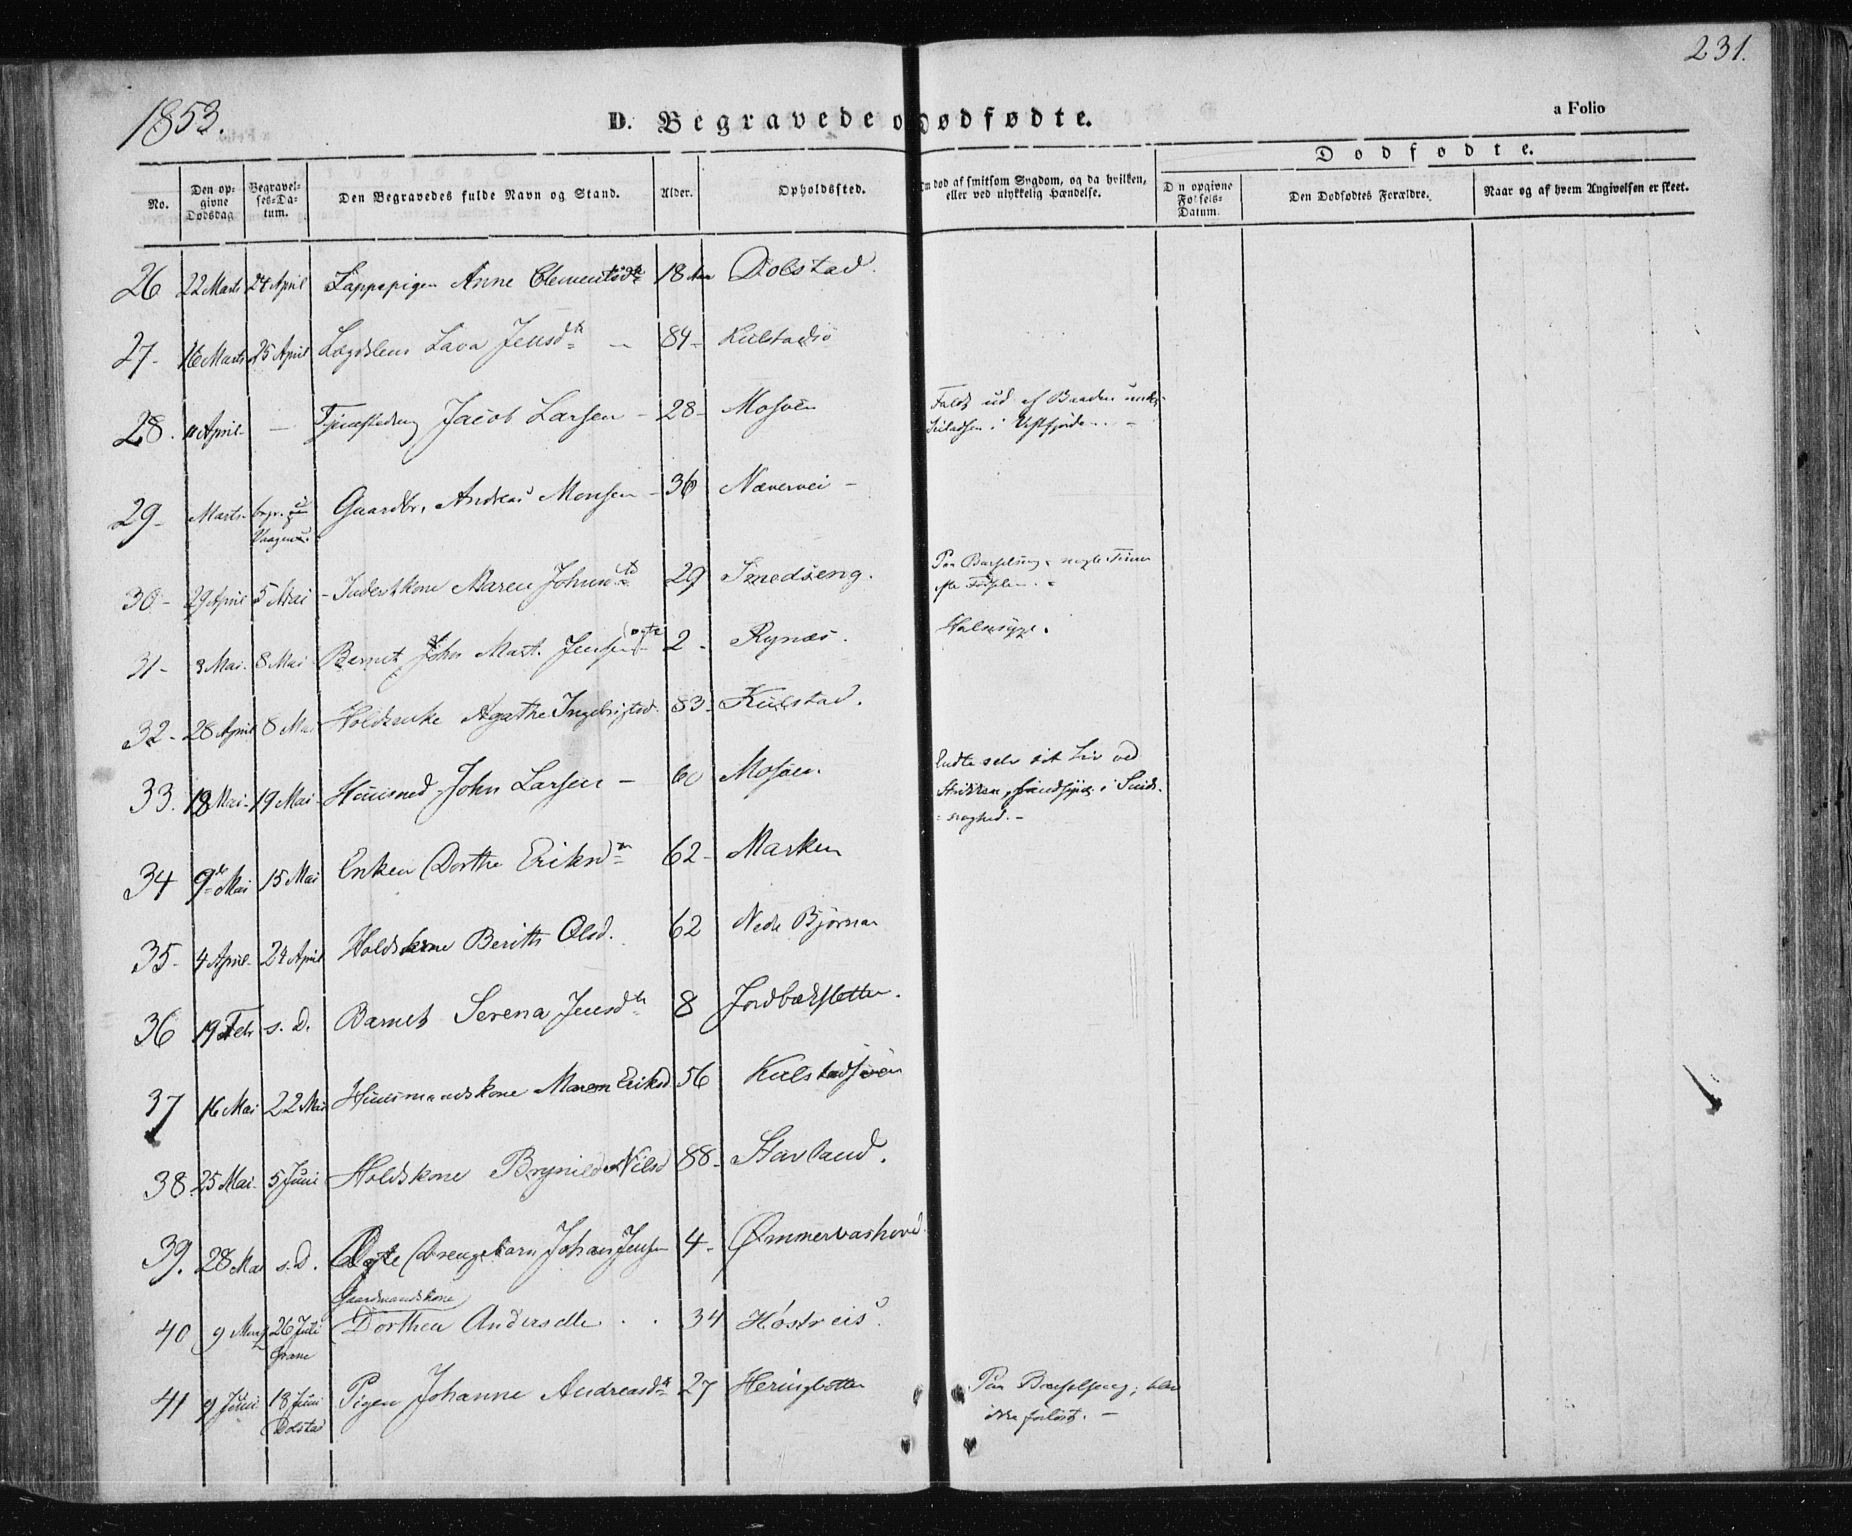 231.
1853.
D. Begravede o Dødfødte.
a Folio
No.
Den op-
givne
Dødsdag
Begravel-
ses-Da-
tum.
Den Begravedes fulde Navn og Stand.
Alder.
Opholdssted.
Om død af smitsom Sygdom, og da hvilken,
eller ved ulykkelig Hændelse.
Dødfødte.
D n opgivne
Fødsels-
Datum.
Den Dødfødtes Forældre.
Naar og af hvem Angivelsen er skeet.
26 22 Marts 24 April Lappepigen Anne Clementsdtr 18 Aar Dolstad.
27- 16 Marts 25 April Lægdslem Lava Jensdtr - 84- Kulstadsjö
28. 11 April - Jacob Larsen - 28- Mosöen Faldt ud af Baaden under
Seiladsen i Vestfjorden. -
29- Marts- begr. i Gaardbr. Andreas Monsen - 36 Nævervei -
Vaagen
30- 29 April 5 Mai - Inderstkone Maren Johnsdtr 29 Smedseng. Paa Barselseng, nogle Timer
efter Fødselen. -
31- 3 Mai. 8 Mai Barnet John Mart. Jensen 2- Rynæs. Halssyge.
32- 28 April 8 Mai Holdsenke Agathe Ingebrigtsd. 83- Kulstad.
33. 18 Mai- 19 Mai- Huusmd. John Larsen - 60 Mosöen Endte selv sit Liv ved
Strikken, i Sinds-
svaghed. -
34 9de Mai 15 Mai Enken Dorthe Eriksdtr 62- Marken
35- 4 April- 24 April Holdskone Berith Olsd. 62 Nedre Bjørnaa
36 19 Febr s. D. Barnet Serena Jensdtr 8 Jordbæksletten.
37 16 Mai 22 Mai Huusmandskone Maren Eriksd 56 Kulstadsjöen
38. 25 Mai- 5 Juni Holdskone Brynild Nilsd 88- Stavland.
39. 28 Mai s. D. Drengebarn Johan Jensen 4- Ømmervashoved
Gaardmandskone
40 9 26 Juli Dorthea Andersdtr . . 34 Høstreis.
Grane
41 9 Juni 18 Juni Pigen Johanne Andreasdtr 27 Heringbotten Paa Barselseng; blev
Dolstad ikke forløst. -